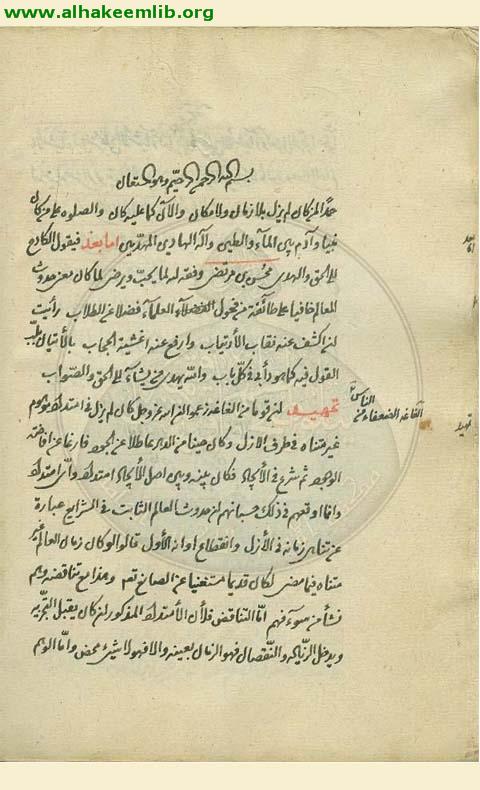 www.alhakeemlib.org
بسم الله الرحمن الرحيم وبه المستعان
حمداً لمن كان لم يزل بلا زمان ولا مكان والآن كما عليه كان والصلوة على من كان
نبيا وآدم بين الماء والطين وآله الهادين المهديين اما بعد فيقول الكادح
الى الحق والهدى محسن بن مرتضى وفقه له لما يحب ويرضى لما كان معنى حدوث
العالم خافيا على طائفة من فحول الفضلاء العلماء فضلا عن الطلاب رأيت
ان اكشف عنه نقاب الأرتياب وارفع عنه اغشية الحجاب بالأتيان بلب
القول فيه كما هو دأبي في كل باب والله يهدي من يشاء الى الحق والصواب
تمهيد ان قوما من الفاغة زعموا ان الله عز وجل كان لم يزل في امتداد موهوم
غير متناه في طرف الازل وكان حينا من الدهر عاطلا عن الجود فارغا عن افاضة
الوجود ثم شرع في الأيجاد فكان بينه وبين اصل الأيجاد امتداد واي امتداد
وانما اوقعهم في ذلك حسبانهم ان حدوث العالم الثابت في الشرايع عبارة
عن تناهي زمانه في الأزل وانقطاع اوانه الأول قالوا لو كان زمان العالم غير
متناه فيما مضى لكان قديما مستغنيا عن الصانع تعم وهذا مع تناقضه وهم
نشأ من سوء فهم اما التناقض فلأن الأمتداد المذكور ان كان يقبل التجزية
ويدخل الزيادة والنقصان فهو الزمان بعينه والا فهو لا شيئ محض واما الوهم
اما بعد
الفاغه الضعفاء من
الناس
تمهيد